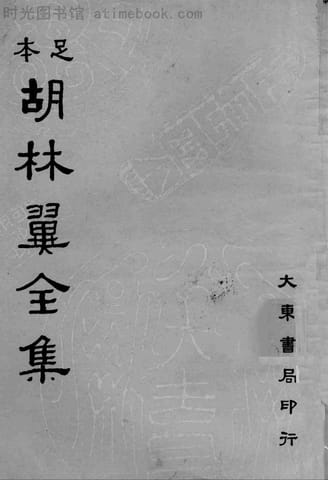 时光图书馆 atimebook.com
足本
胡林翼全集
大東書局印行